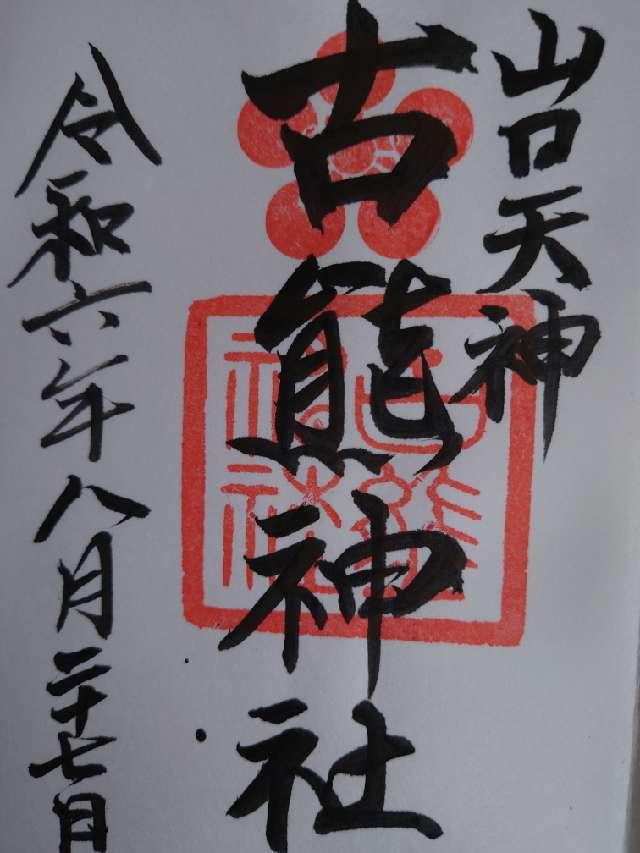 山口天神
古熊神社
令和六年八月二十七日
古熊
神社